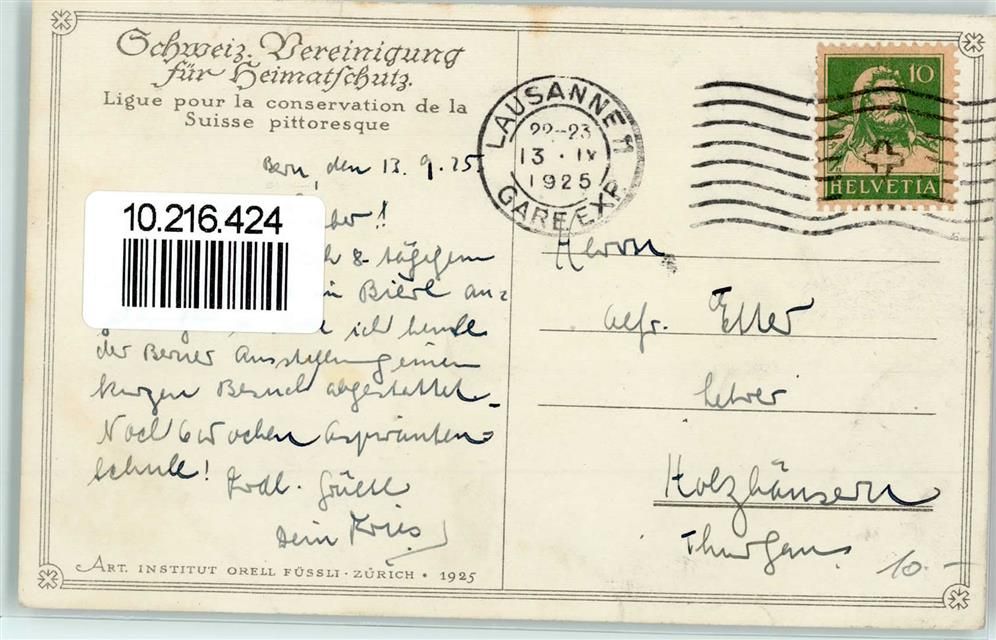 Schweiz. Vereinigung
für Heimatschutz.
Ligue pour la conservation de la
Suisse pittoresque
Bern, den 13. 9. 25.
10.216.424
8-tägigem
in Biere an-
ich heute
der Berner Ausstellung einen
kurzen Besuch abgestattet.
Noch 6 Wochen Aspiranten-
schule!
Frdl. Grüsse
Dein
ART. INSTITUT ORELL FÜSSLI · ZÜRICH · 1925
LAUSANNE 11
22-23
13 · IX
1925
GARE/EXP.
10
HELVETIA
Herrn
Alfr. Etter
Lehrer
Holzhäusern
Thurgau
10.-